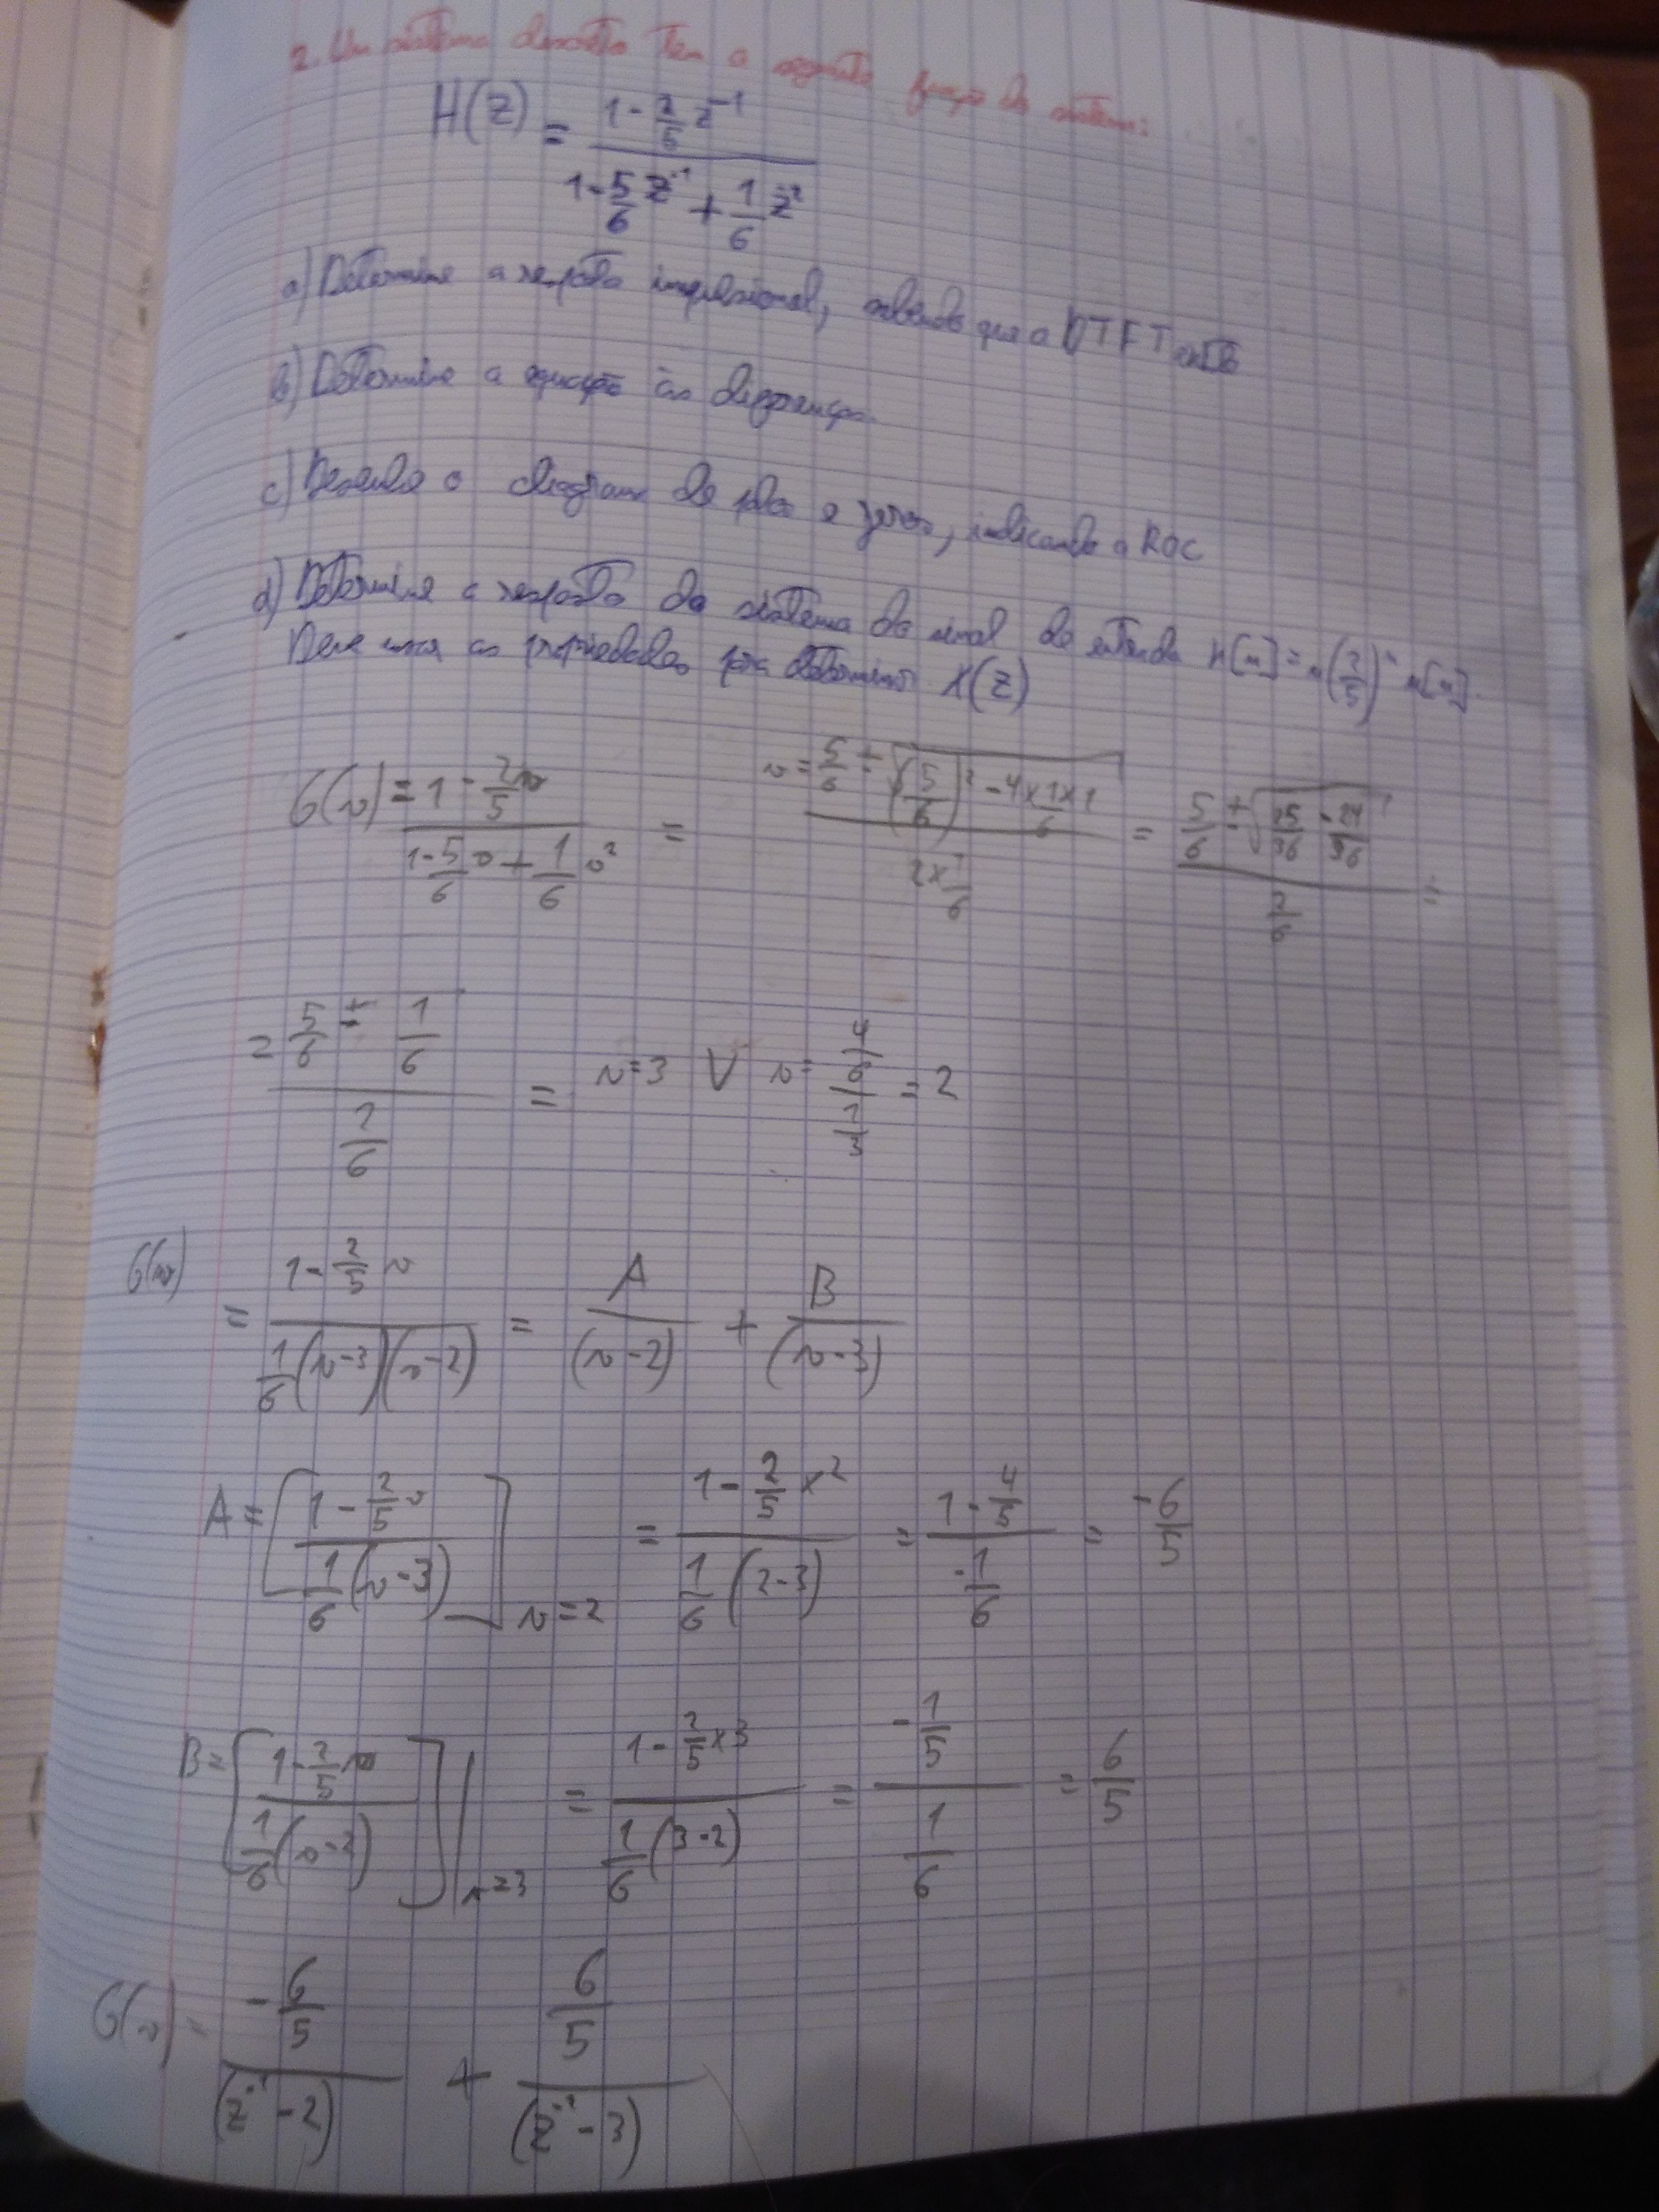 2. Um sistema discreto tem a seguinte função de sistema:
H(Z) = (1 - 2/5 z^-1) / (1 - 5/6 z^-1 + 1/6 z^-2)
a) Determine a resposta impulsional, sabendo que a DTFT existe
b) Determine a equação às diferenças
c) Desenhe o diagrama de polos e zeros, indicando a ROC
d) Determine a resposta do sistema do sinal de entrada x[n] = n(2/5)^n u[n].
Deve usar as propriedades para determinar X(Z)
G(v) = (1 - 2/5 v) / (1 - 5/6 v + 1/6 v²) = v = (5/6 ± √((5/6)² - 4 × 1/6 × 1)) / (2 × 1/6) = (5/6 ± √(25/36 - 24/36)) / (2/6) =
= (5/6 ± 1/6) / (2/6) = v = 3 V v = (4/6) / (1/3) = 2
G(v) = (1 - 2/5 v) / (1/6 (v-3)(v-2)) = A / (v-2) + B / (v-3)
A = [(1 - 2/5 v) / (1/6 (v-3))] v=2 = (1 - 2/5 × 2) / (1/6 (2-3)) = (1 - 4/5) / (-1/6) = -6/5
B = [(1 - 2/5 v) / (1/6 (v-2))] | v=3 = (1 - 2/5 × 3) / (1/6 (3-2)) = (-1/5) / (1/6) = 6/5
G(v) = (-6/5) / (z^-1 - 2) + (6/5) / (z^-1 - 3)